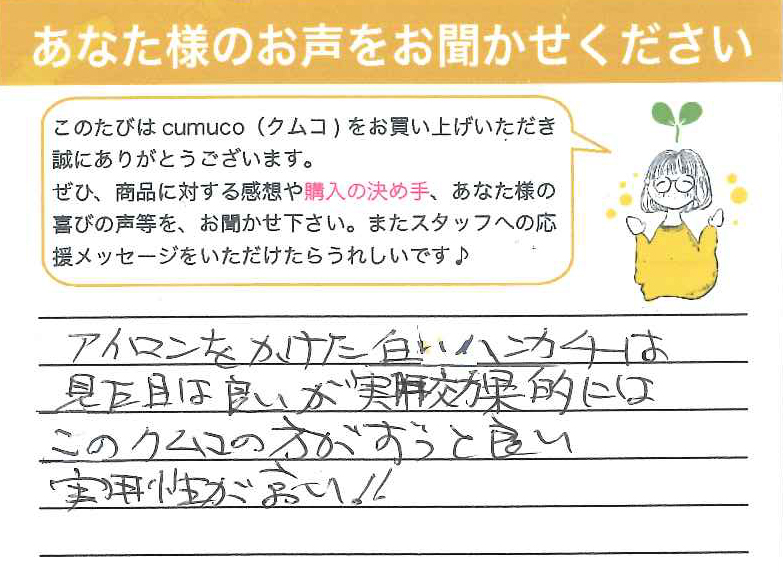 あなた様のお声をお聞かせください
このたびは cumuco（クムコ）をお買い上げいただき
誠にありがとうございます。
ぜひ、商品に対する感想や購入の決め手、あなた様の
喜びの声等を、お聞かせ下さい。またスタッフへの応
援メッセージをいただけたらうれしいです♪
アイロンをかけた白いハンカチーは
見た目は良いが実用効果的には
このクムコの方がずうと良い
実用性が高い!!